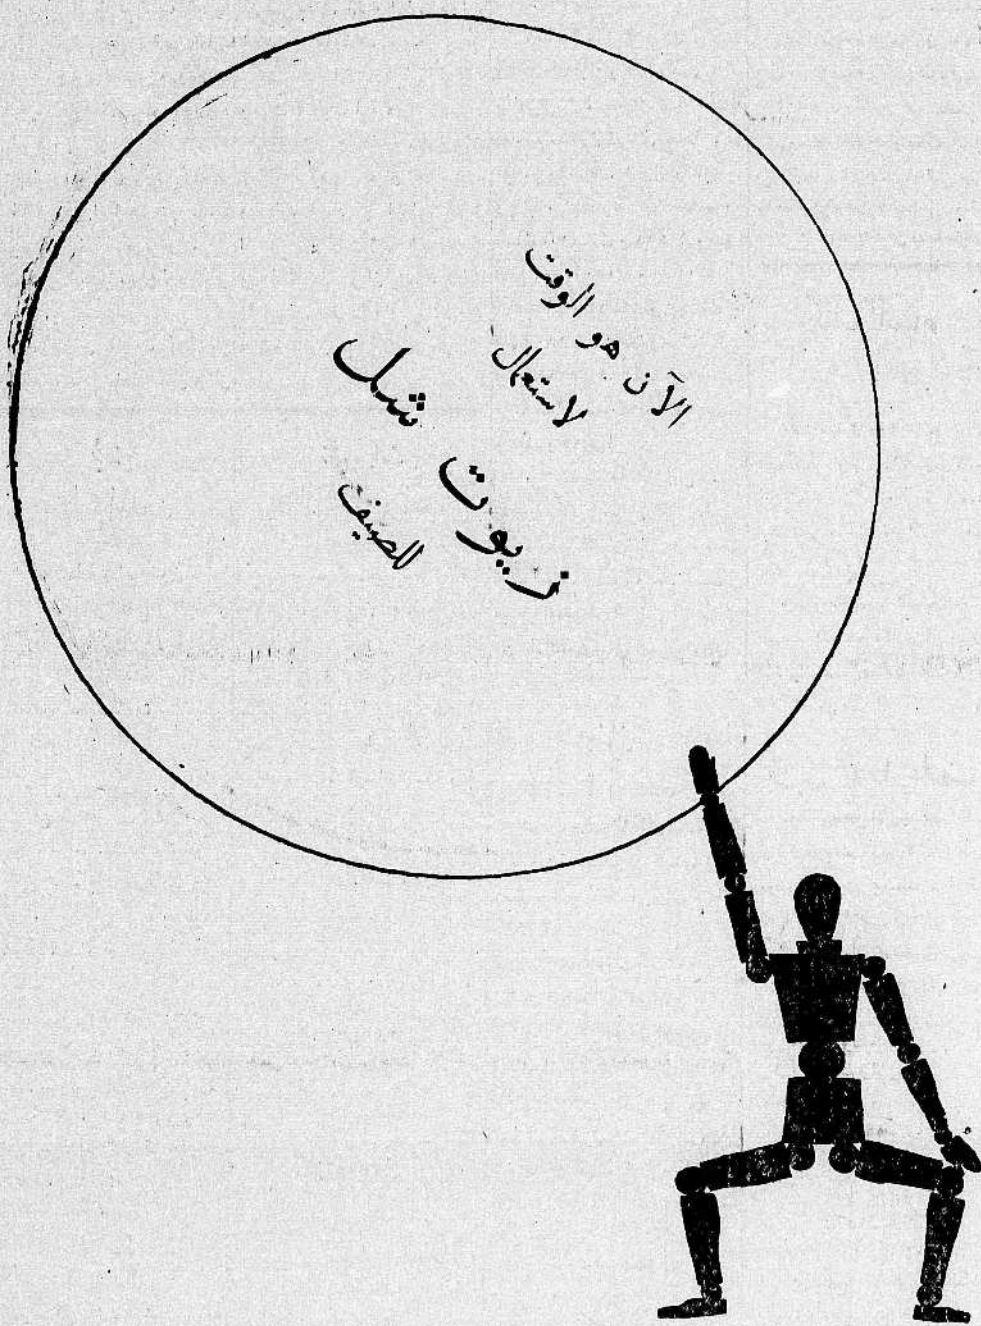 الآن هو الوقت
لاستعمال
زيوت شل
للصيف